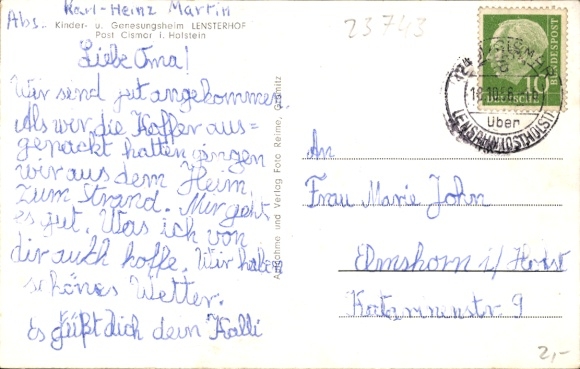 Abs. Karl-Heinz Martin
Kinder- u. Genesungsheim LENSTERHOF
Post Cismar i. Holstein
23743
Liebe Oma!
Wir sind gut angekommen.
Als wir die Koffer aus=
gepackt hatten gingen
wir aus dem Heim
zum Strand. Mir geht
es gut. Was ich von
dir auch hoffe. Wir haben
schönes Wetter.
Es grüßt dich dein Kalli
Aufnahme und Verlag Foto Reime,
DEUTSCHE BUNDESPOST
10
über
LENSAHN (OSTHOLST)
An
Frau Marie John
Elmshorn i/Holst
Katarinenstr 9
2,-